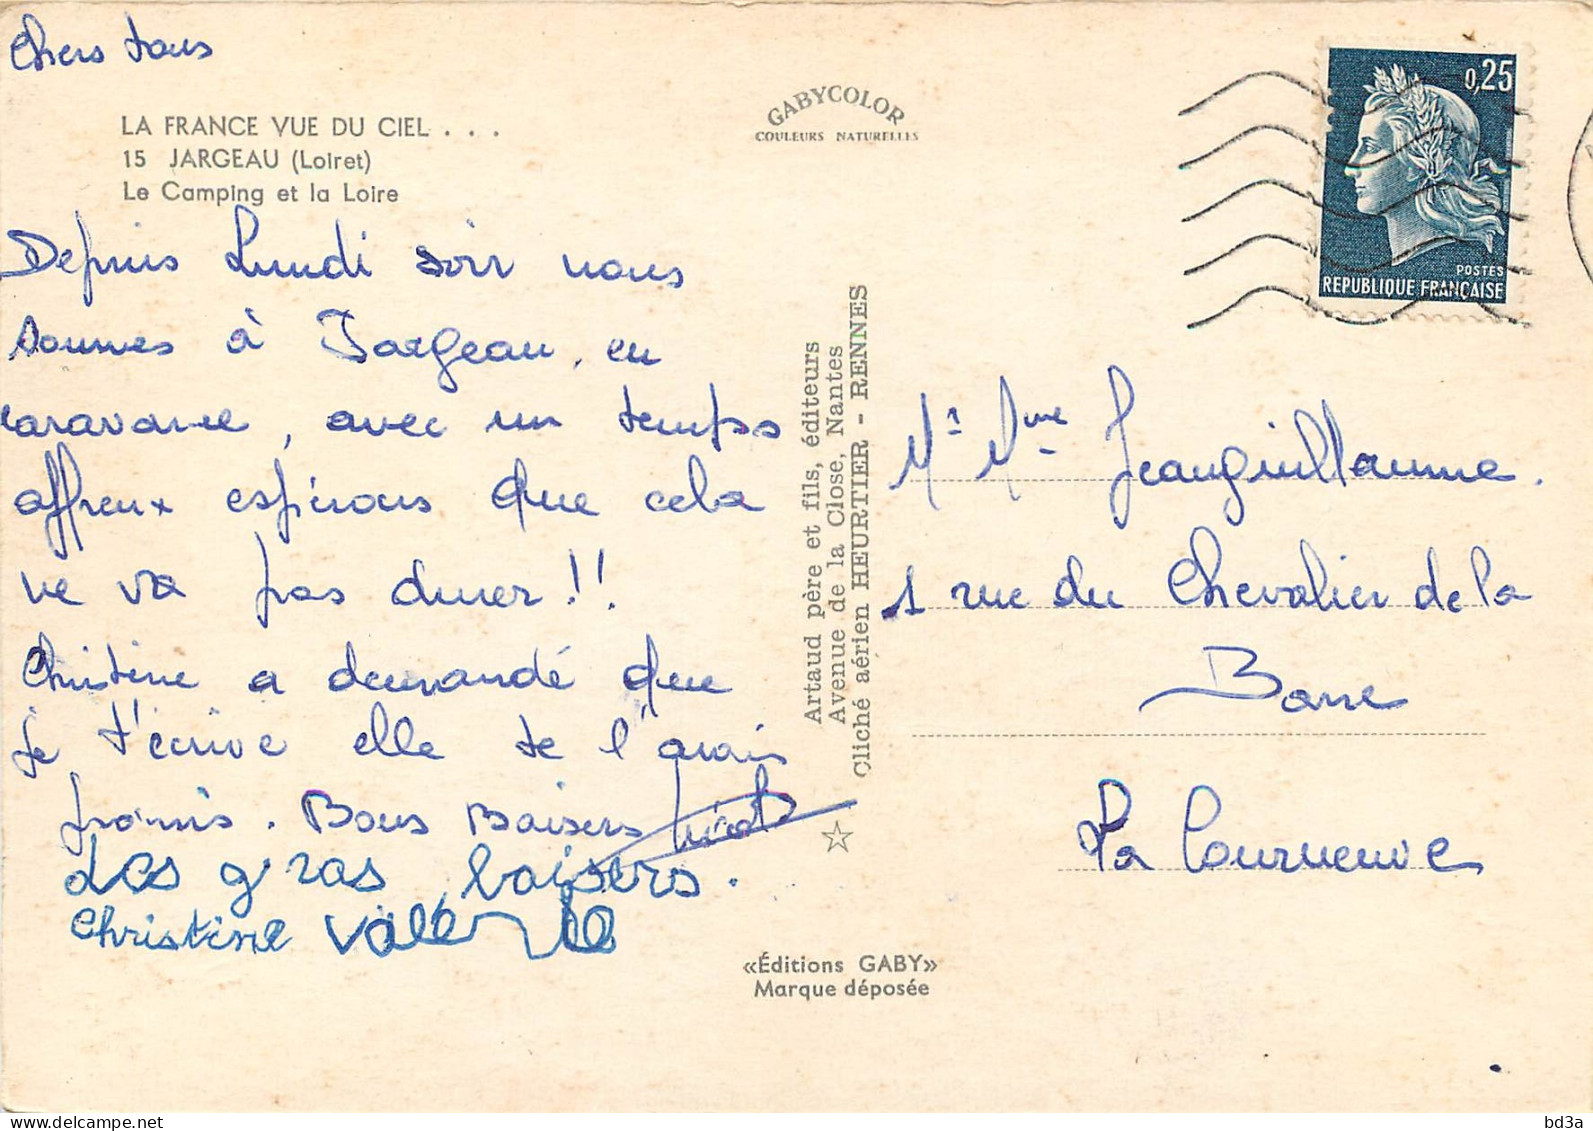 Chers tous
LA FRANCE VUE DU CIEL . . .
15 JARGEAU (Loiret)
Le Camping et la Loire
Depuis Lundi soir nous
sommes à Jargeau, en
caravane, avec un temps
affreux espérons que cela
ne va pas durer!!
Christine a demandé que
je t'écrive elle te l'avais
promis. Bons Baisers
des gras baisers.
Christine Valérie
GABYCOLOR
COULEURS NATURELLES
Artaud père et fils, éditeurs
Avenue de la Close, Nantes
Cliché aérien HEURTIER - RENNES
«Éditions GABY»
Marque déposée
0,25
POSTES
REPUBLIQUE FRANÇAISE
Mr Mme Jeanguillaume.
1 rue du Chevalier de la
Barre
La Courneuve
bd3a